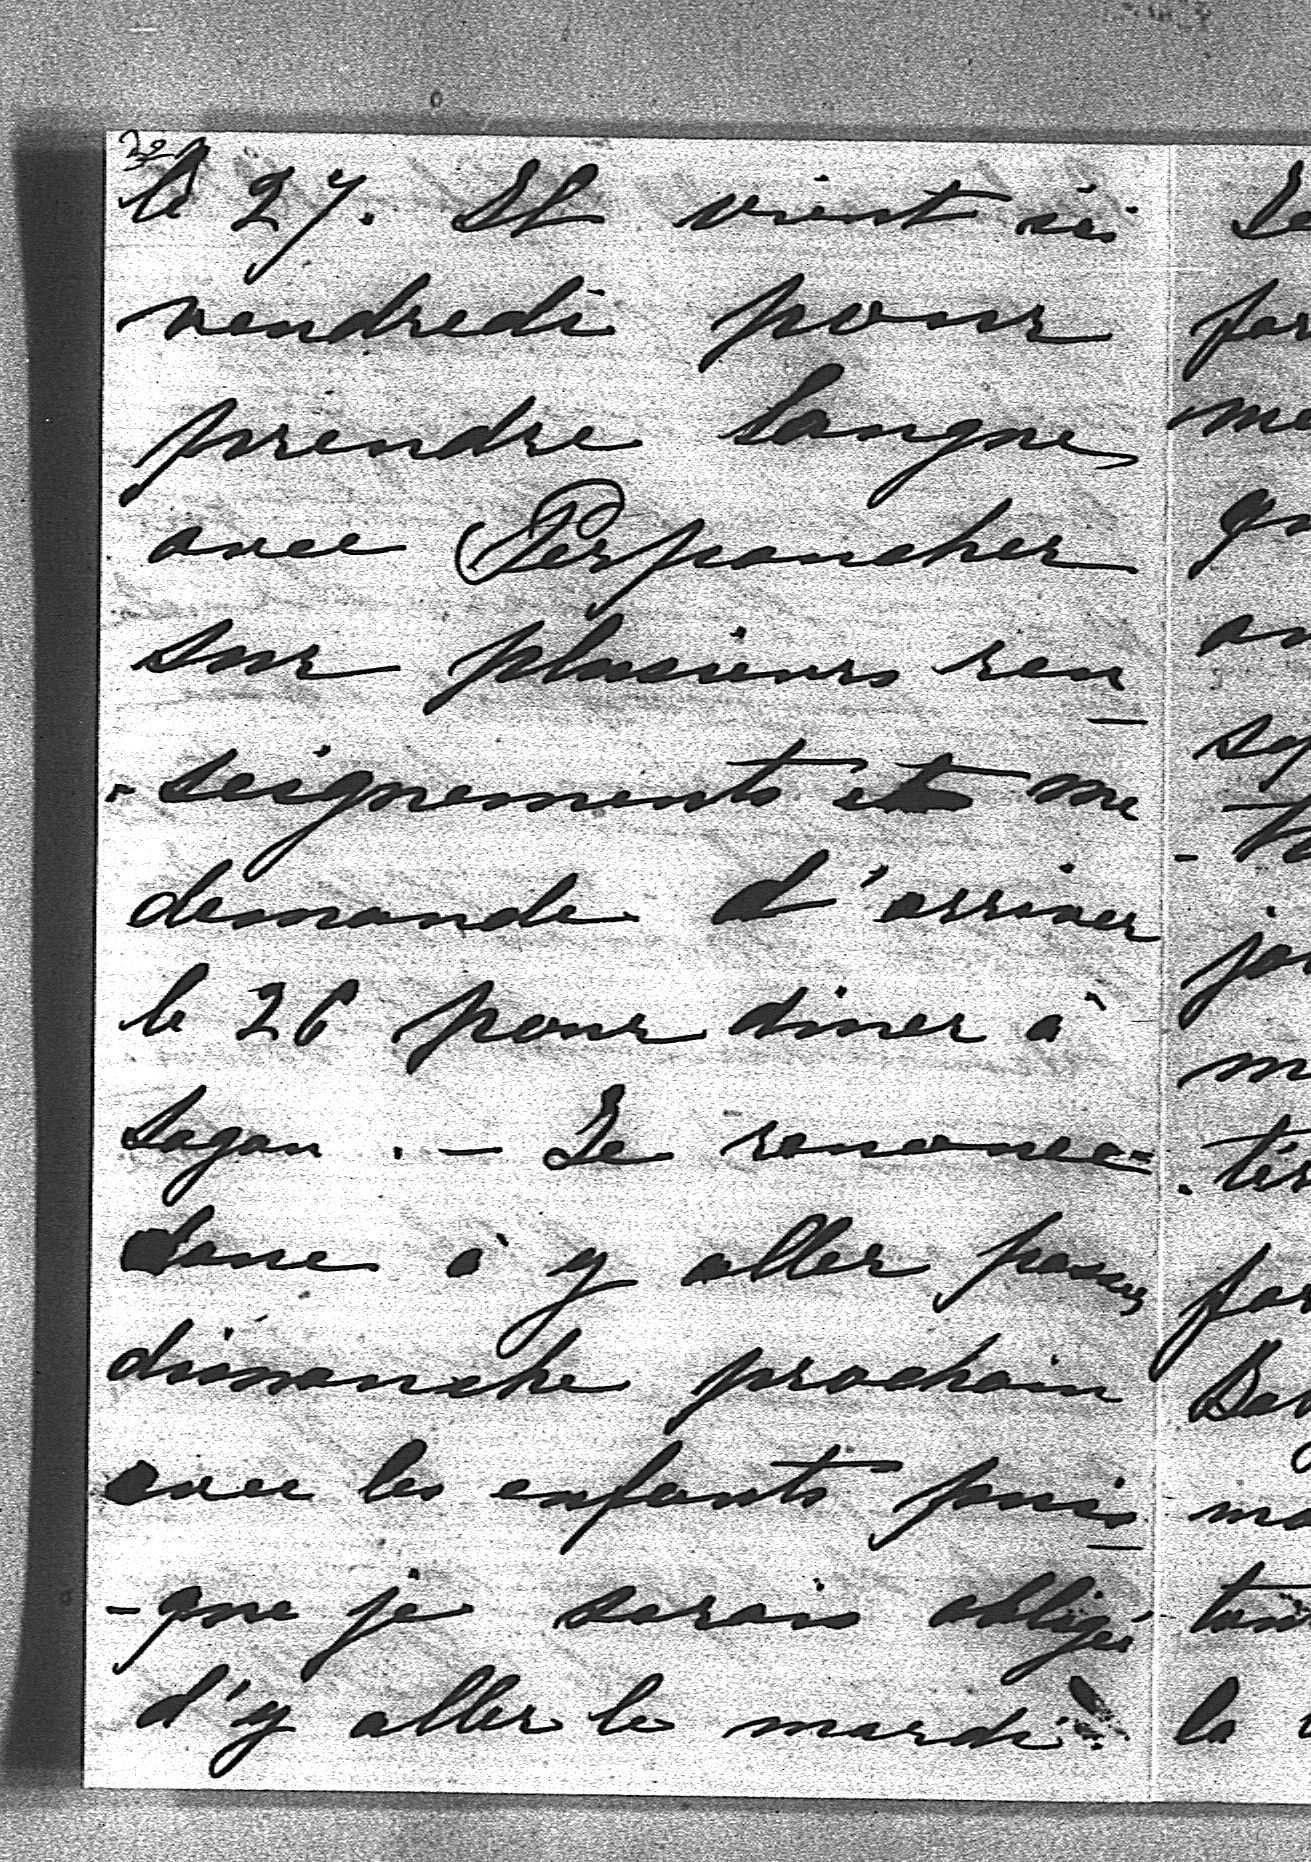 le 27. Il vient ici
vendredi pour
prendre langue
avec Perponcher
sur plusieurs ren
-seignements et me
demande d'arriver
le 26 pour diner à
Sagan. - Je renonce
donc à y aller
dimanche prochain
avec les enfants puis
-que je serais obligé
d'y aller le mardi
Je
la